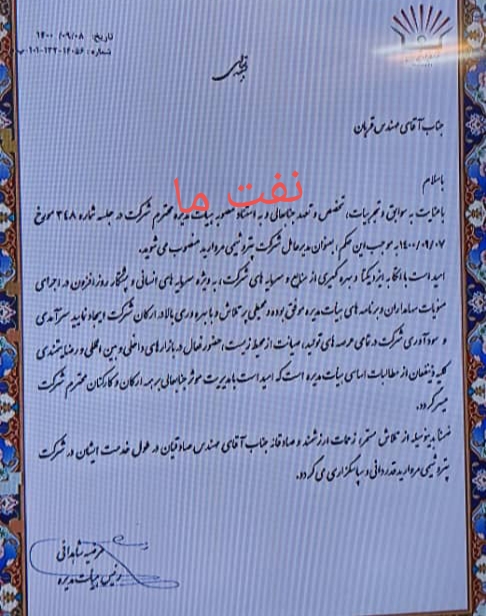 تاریخ: ۱۴۰۰/۰۹/۰۸
شماره: ۱۴۰۵۶-۱۳۲-۱۰۱-پ
بسمه تعالی
جناب آقای مهندس قربان
باسلام
نفت ما
باعنایت به سوابق و تجربیات، تخصص و تعهد جنابعالی و به استناد مصوبه هیات مدیره محترم شرکت در جلسه شماره ۳۴۸ مورخ
۱۴۰۰/۰۹/۰۷ به موجب این حکم، بعنوان مدیرعامل شرکت پتروشیمی مروارید منصوب می شوید.
امید است با اتکا به ایزد یکتا و بهره گیری از منابع و سرمایه های شرکت، به ویژه سرمایه های انسانی و پشتکار روزافزون در اجرای
منویات سهامداران و برنامه های هیات مدیره موفق بوده و محیطی پر تلاش و با بهره وری بالا در ارکان شرکت ایجاد نمایید سرآمدی و
سودآوری شرکت در تمامی عرصه های تولید، صیانت از محیط زیست، حضور فعال در بازارهای داخلی و بین المللی و رضایتمندی
کلیه ذینفعان از مطالبات اساسی هیات مدیره است که امید است با مدیریت موثر جنابعالی بر همه ارکان و کارکنان محترم شرکت
میسر گردد.
ضمنا بدینوسیله از تلاش مستمر، زحمات ارزشمند و صادقانه جناب آقای مهندس صادقیان در طول خدمت ایشان در شرکت
پتروشیمی مروارید قدردانی و سپاسگزاری می گردد.
مرضیه شاهدائی
رئیس هیات مدیره